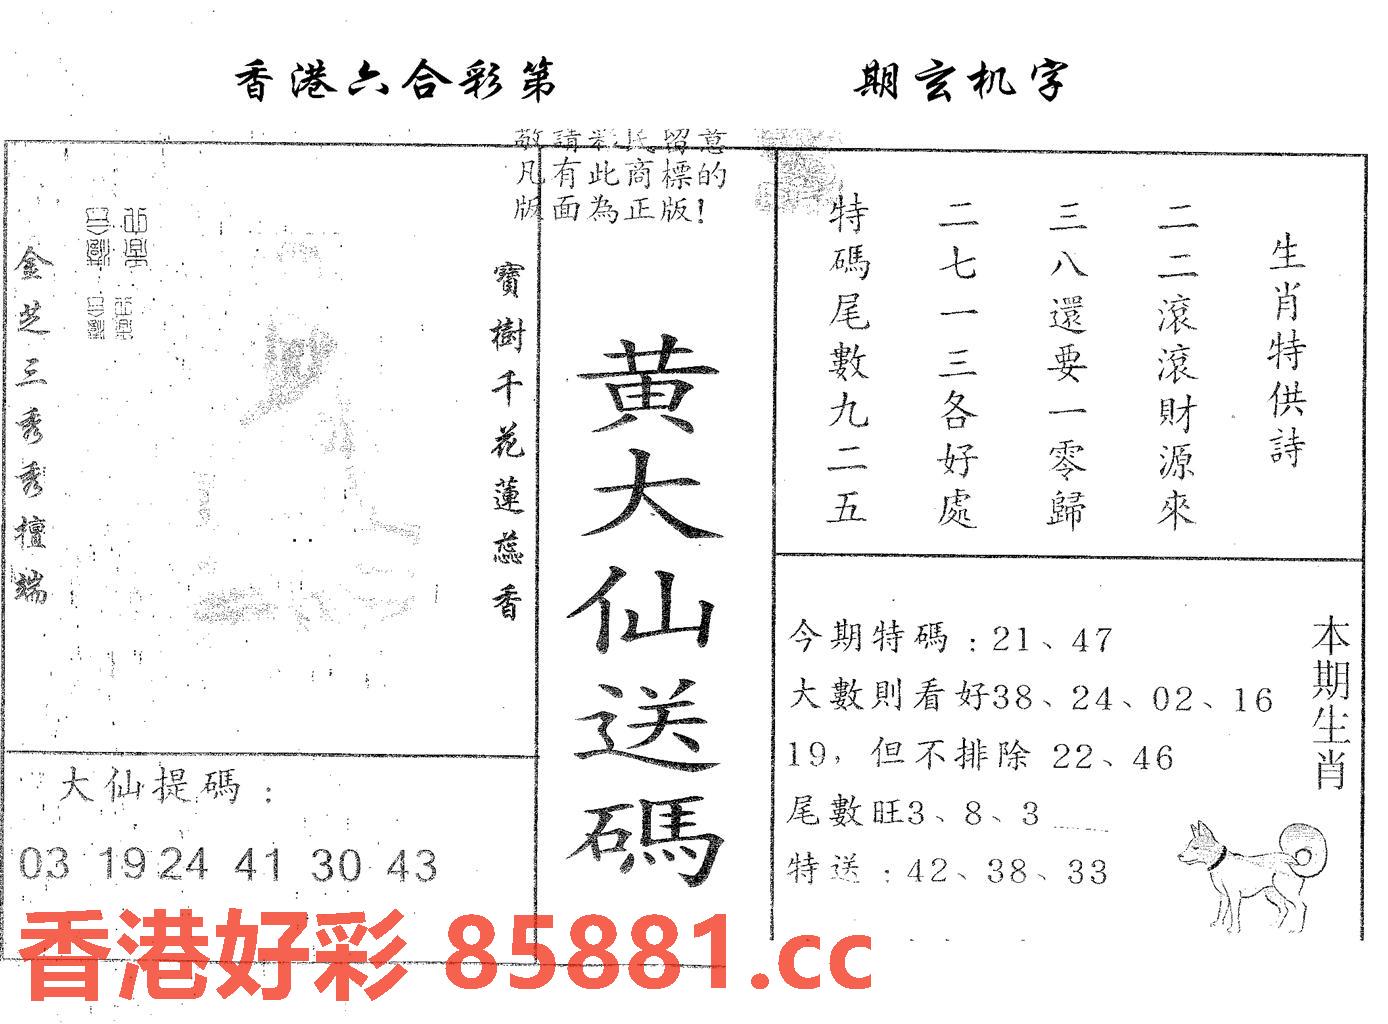 香港六合彩第　期玄机字
敬請彩民留意
凡有此商標的
版面為正版!
生肖特供詩
二二滾滾財源來
三八還要一零歸
二七一三各好處
特碼尾數九二五
寶樹千花蓮蕊香
金芝三秀秀檀端
黄大仙送碼
今期特碼：21、47
大數則看好38、24、02、16
19，但不排除 22、46
尾數旺3、8、3
特送：42、38、33
本期生肖
大仙提碼：
03 19 24 41 30 43
香港好彩 85881.cc